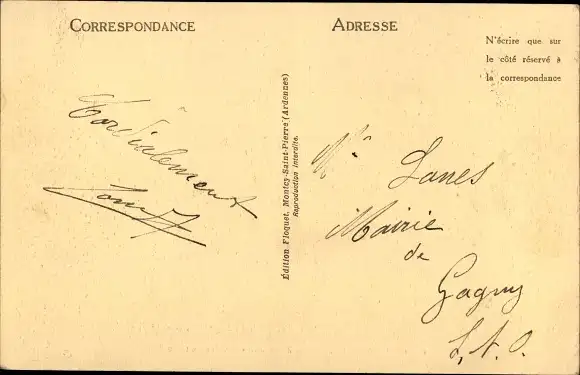 CORRESPONDANCE
ADRESSE
N'écrire que sur
le côté réservé à
la correspondance
Cordialement
Édition Floquet, Montcy-Saint-Pierre (Ardennes)
Reproduction interdite.
Mr Lanes
Mairie
de
Gagny